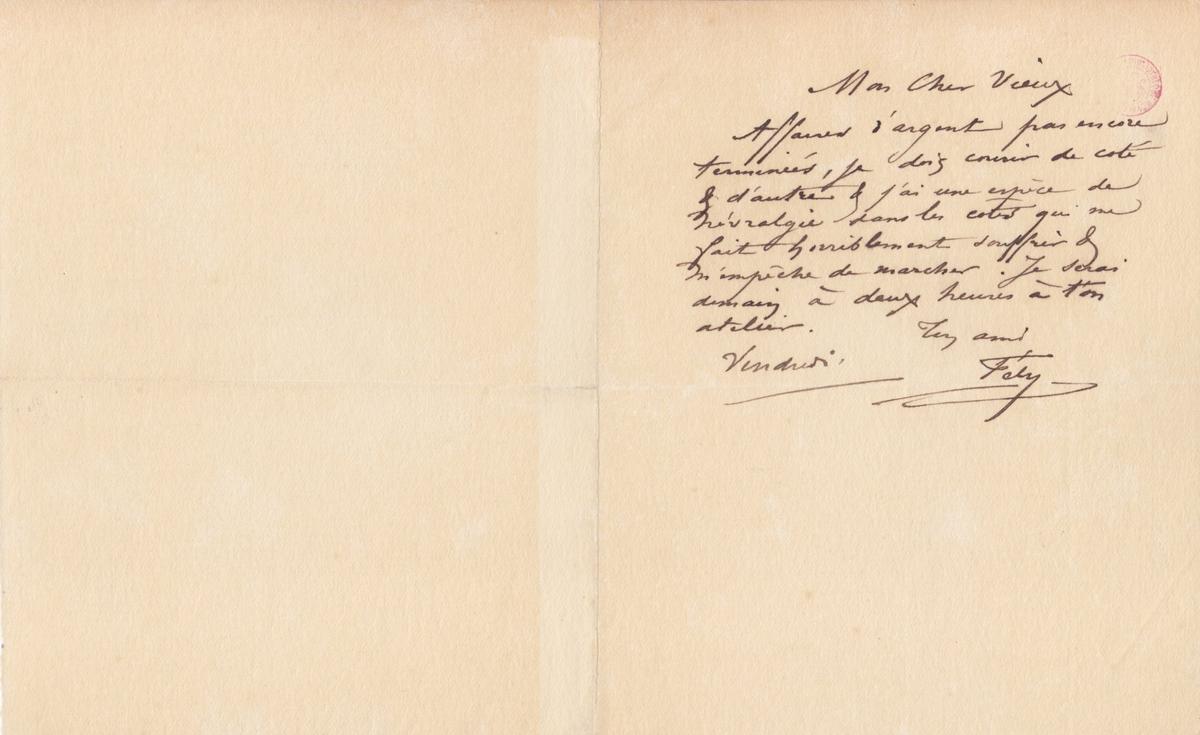 Mon Cher Vieux
Affaires d'argent pas encore
terminées, je dois courir de coté
& d'autre & j'ai une espèce de
névralgie dans les cotés qui me
fait horriblement souffrir &
m'empêche de marcher. Je serai
demain à deux heures à ton
atelier.
Ton ami
Vendredi.
Fély